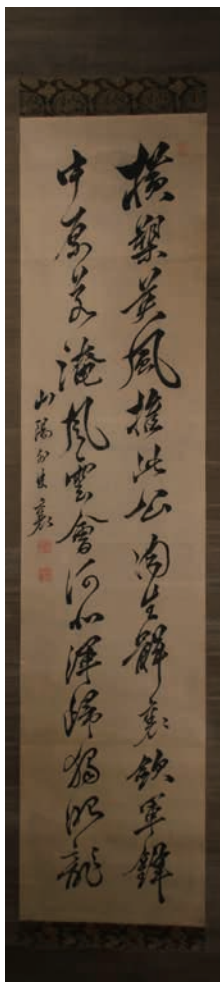 横槊英風推此公肉生髀裏斂軍鋒
中原若淹風雲會河北渾歸獨眼龍
山陽外史襄